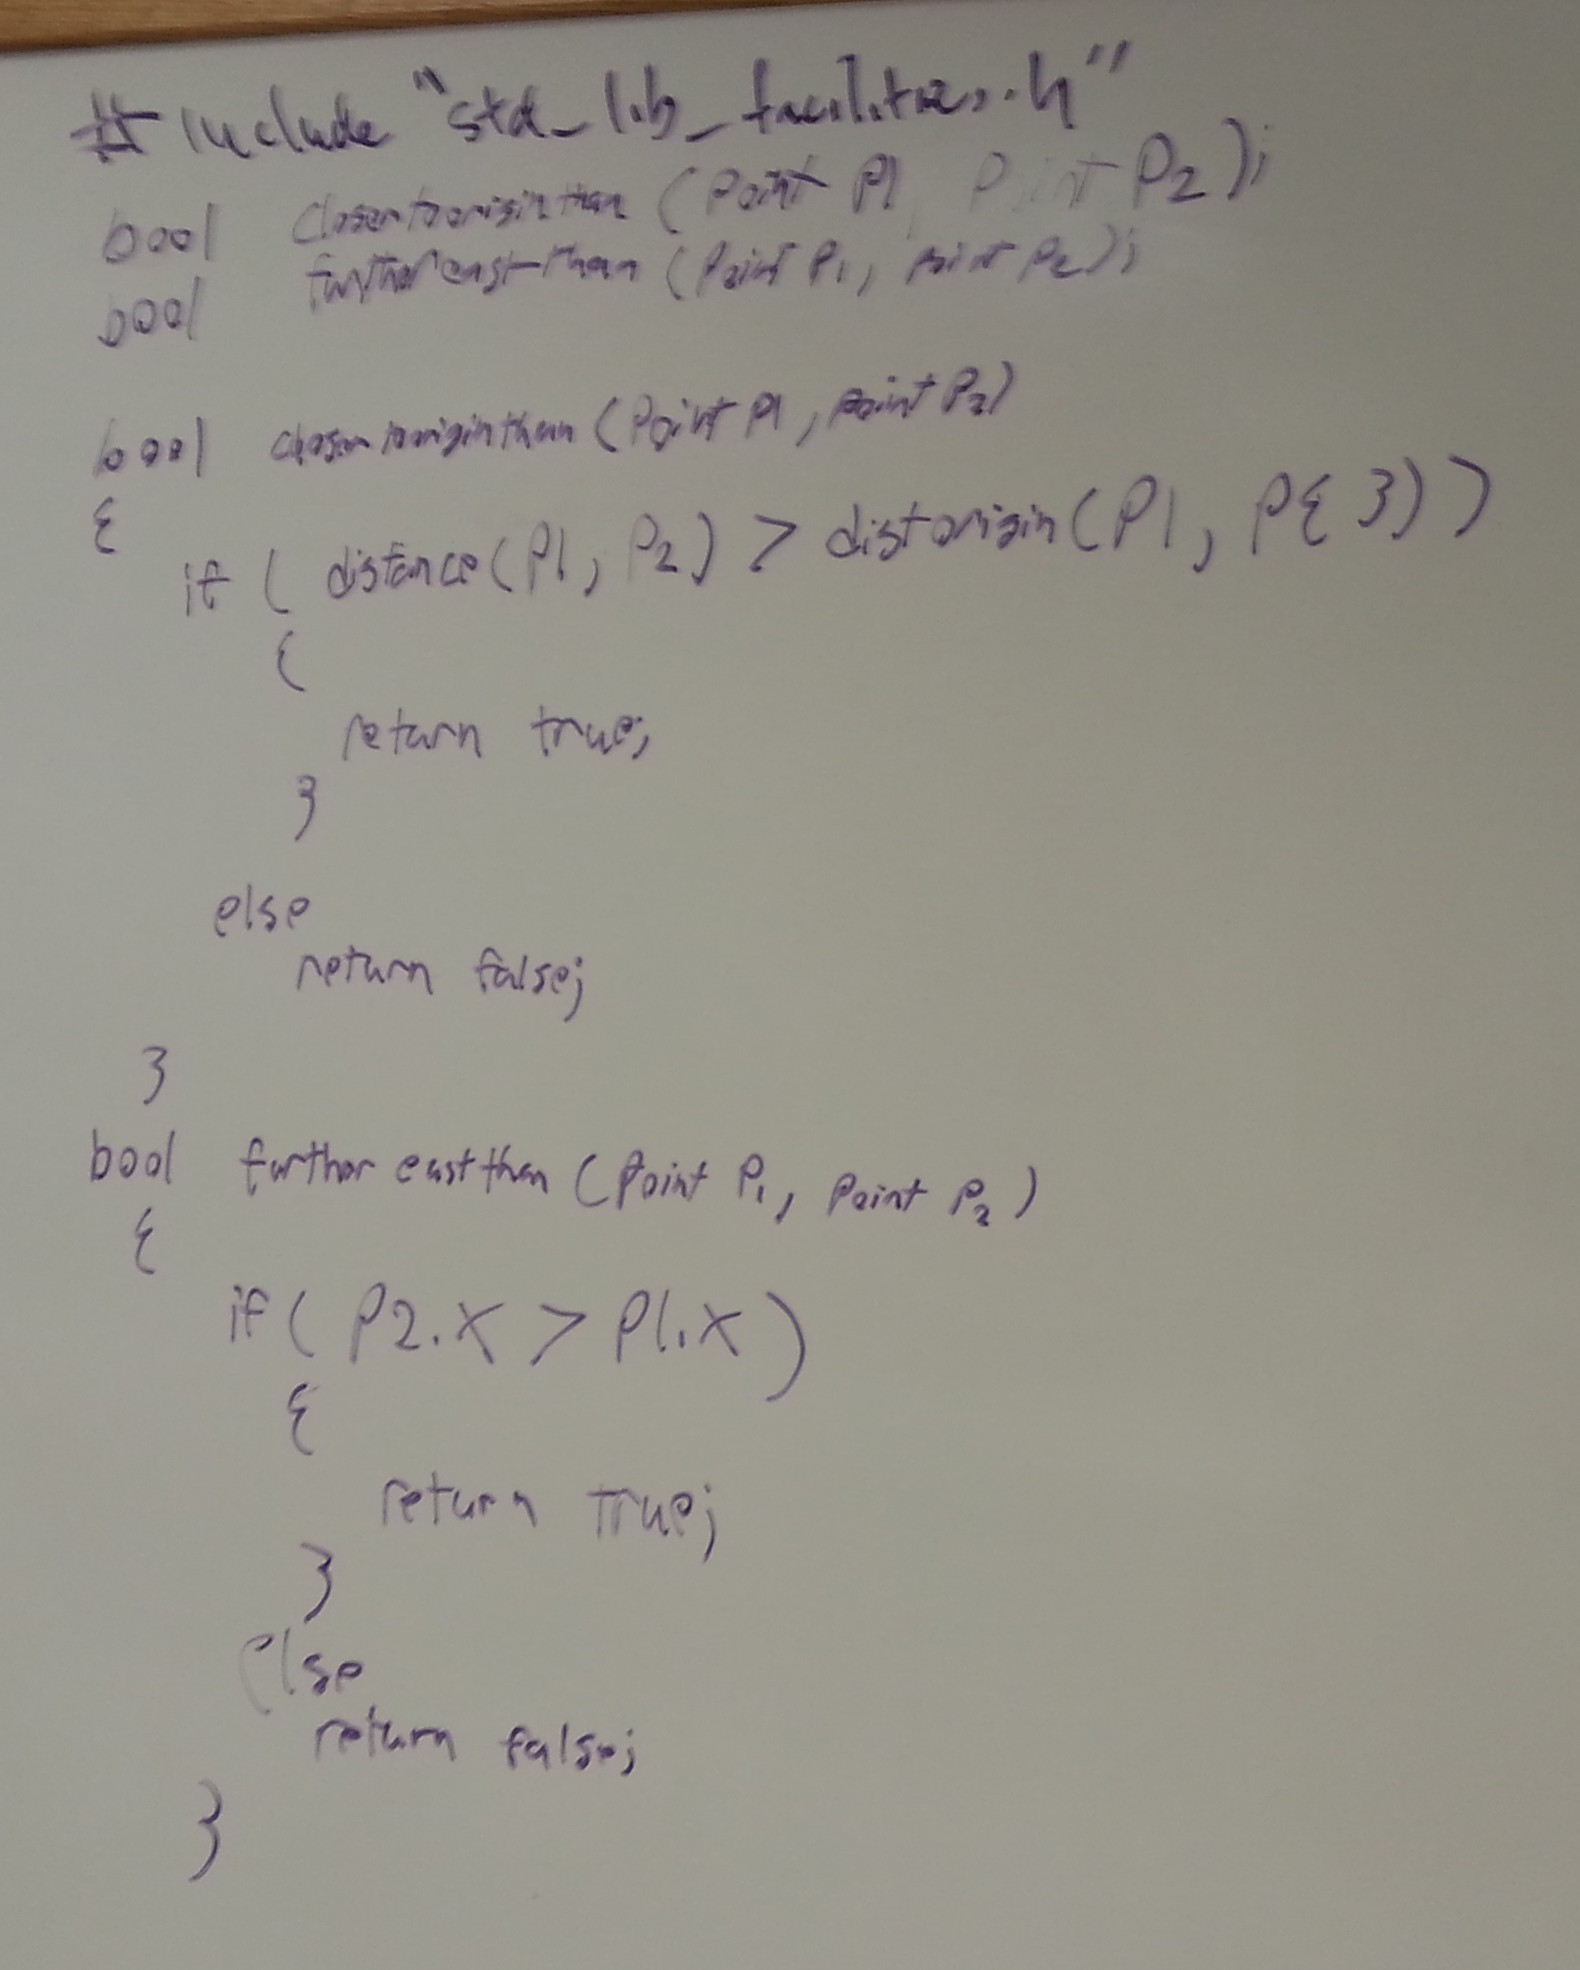 #include "std_lib_facilities.h"
bool closertooriginthan (Point P1, Point P2);
bool furthereastthan (Point P1, Point P2);
bool closertooriginthan (Point P1, Point P2)
{
if ( distance(P1, P2) > distorigin(P1, P{}))
{
return true;
}
else
return false;
}
bool furthereastthan (Point P1, Point P2)
{
if ( P2.x > P1.x )
{
return true;
}
else
return false;
}